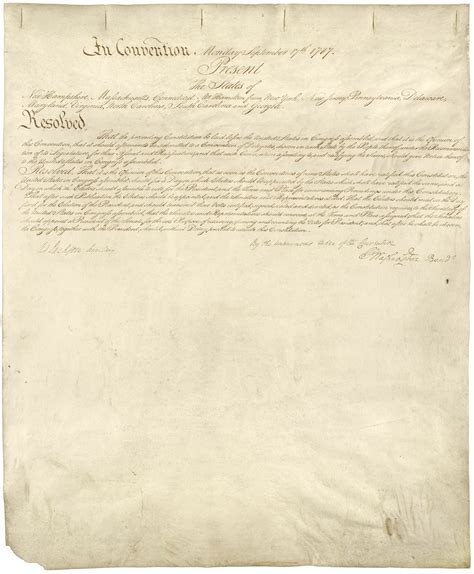 In Convention Monday September 17th 1787.
Present
The States of
New Hampshire, Massachusetts, Connecticut, Mr Hamilton from New York, New Jersey, Pennsylvania, Delaware,
Maryland, Virginia, North Carolina, South Carolina and Georgia.
Resolved
That the preceeding Constitution be laid before the United States in Congress assembled, and that it is the Opinion of
this Convention, that it should afterwards be submitted to a Convention of Delegates, chosen in each State by the People thereof, under the Recommenda
tion of its Legislature, for their Assent and Ratification; and that each Convention assenting to, and ratifying the Same, should give Notice thereof
to the United States in Congress assembled.
Resolved, That it is the Opinion of this Convention, that as soon as the Conventions of nine States shall have ratified this Constitution, the
United States in Congress assembled should fix a Day on which Electors should be appointed by the States which shall have ratified the same, and a
Day on which the Electors should assemble to vote for the President, and the Time and Place for commencing Proceedings under this Constitution.
That after such Publication the Electors should be appointed, and the Senators and Representatives elected: That the Electors should meet on the Day
fixed for the Election of the President, and should transmit their Votes certified, signed, sealed and directed, as the Constitution requires, to the Secretary of
the United States in Congress assembled, that the Senators and Representatives should convene at the Time and Place assigned; that the Senators
should appoint a President of the Senate, for the sole Purpose of receiving, opening and counting the Votes for President; and, that after he shall be chosen,
the Congress, together with the President, should, without Delay, proceed to execute this Constitution.
By the unanimous Order of the Convention
W. Jackson Secretary. Go: Washington Presidt.